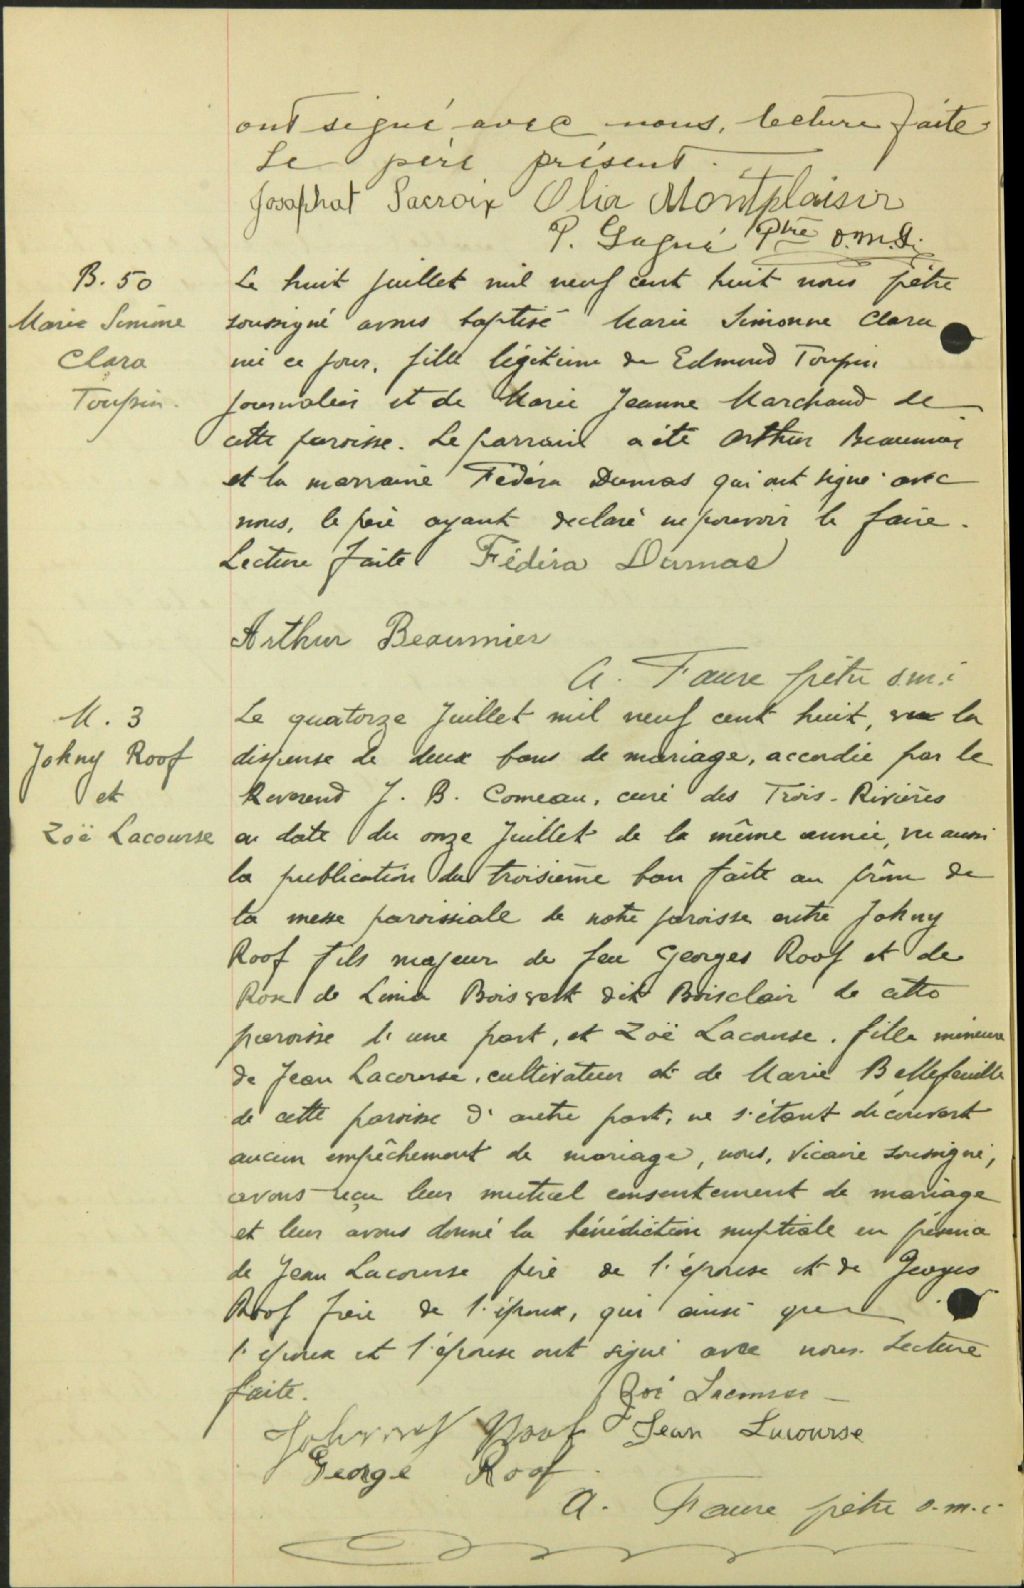 ont signé avec nous. lecture faite
Le père présent.
Josaphat Lacroix Olia Montplaisir
P. Gagné Ptre o.m.i.
B. 50
Marie Simone
Clara
Toupin.
Le huit juillet mil neuf cent huit nous prêtre
soussigné avons baptisé Marie Simonne Clara
née ce jour, fille légitime de Edmond Toupin
journalier et de Marie Jeanne Marchand de
cette paroisse. Le parrain a été Arthur Beaumier
et la marraine Fédéra Dumas qui ont signé avec
nous, le père ayant declaré ne pouvoir le faire.
Lecture faite Fédéra Dumas
Arthur Beaumier
A. Faure prêtre o.m.i
M. 3
Johny Roof
et
Zoë Lacourse
Le quatorze Juillet mil neuf cent huit, vu la
dispense de deux bans de mariage, accordée par le
Reverend J. B. Comeau, curé des Trois-Rivières
en date du onze Juillet de la même année, vu aussi
la publication du troisième ban faite au prône de
la messe paroissiale de notre paroisse entre Johny
Roof fils majeur de feu Georges Roof et de
Rose de Lima Boisvert dit Boisclair de cette
paroisse d'une part, et Zoë Lacourse, fille mineure
de Jean Lacourse, cultivateur et de Marie Bellefeuille
de cette paroisse d'autre part; ne s'étant découvert
aucun empêchement de mariage, nous, Vicaire soussigné,
avons reçu leur mutuel consentement de mariage
et leur avons donné la bénédiction nuptiale en présence
de Jean Lacourse père de l'épouse et de Georges
Roof frère de l'époux, qui ainsi que
l'époux et l'épouse ont signé avec nous. Lecture
faite. Zoé Lacourse
Johnny Roof Jean Lacourse
George Roof.
A. Faure prêtre o.m.i.